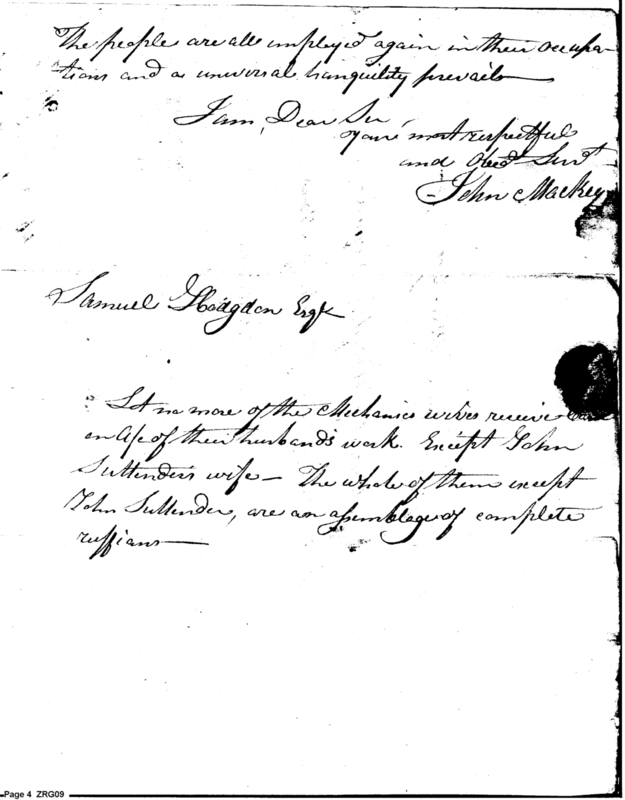 The people are all employed again in their occupa-
tions and a universal tranquility prevails—
I am, Dear Sir,
your most respectful
and Obedt. Servt.
John Mackey
Samuel Hodgdon Esqr
Let no more of the Mechanics wives receive
on A/c of their husband's work. Except John
Suttender's wife— The whole of them except
John Suttender, are an assemblage of complete
ruffians—
Page 4 ZRG09